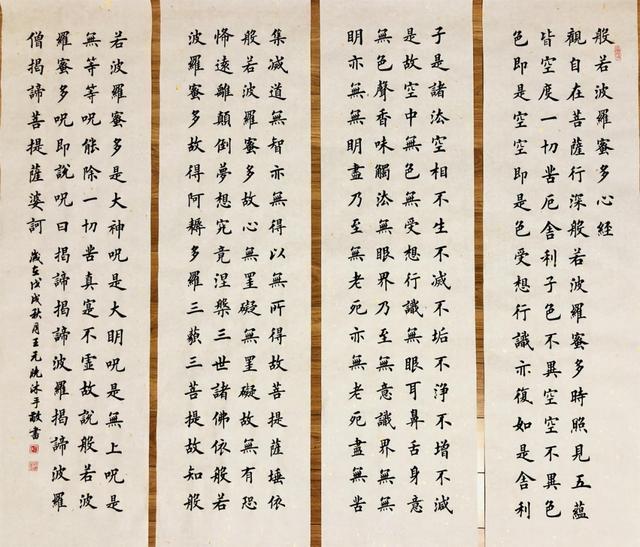 般若波羅蜜多心經
觀自在菩薩行深般若波羅蜜多時照見五蘊
皆空度一切苦厄舍利子色不異空空不異色
色即是空空即是色受想行識亦復如是舍利
子是諸法空相不生不滅不垢不淨不增不減
是故空中無色無受想行識無眼耳鼻舌身意
無色聲香味觸法無眼界乃至無意識界無無
明亦無無明盡乃至無老死亦無老死盡無苦
集滅道無智亦無得以無所得故菩提薩埵依
般若波羅蜜多故心無罣礙無罣礙故無有恐
怖遠離顛倒夢想究竟涅槃三世諸佛依般若
波羅蜜多故得阿耨多羅三藐三菩提故知般
若波羅蜜多是大神呪是大明呪是無上呪是
無等等呪能除一切苦真寔不虛故說般若波
羅蜜多呪即說呪曰揭諦揭諦波羅揭諦波羅
僧揭諦菩提薩婆訶
歲在戊戌秋月王元沐手敬書